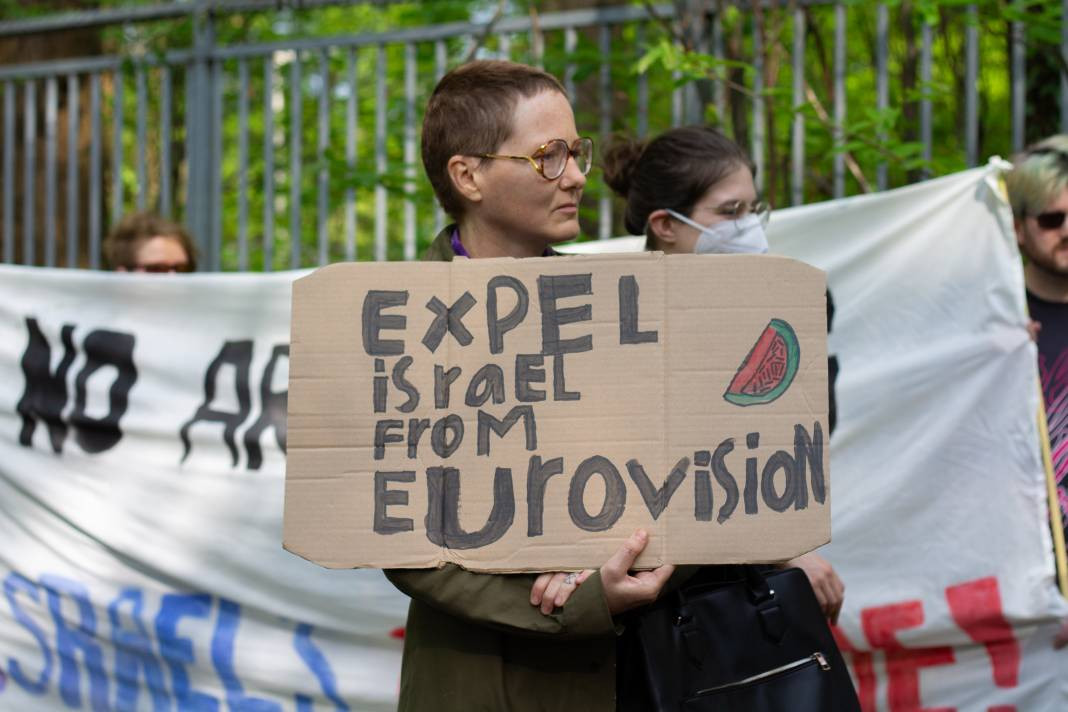 EXPEL
iSraEL
FroM
EUroviSioN
NO AR
SRAEL'S
E!